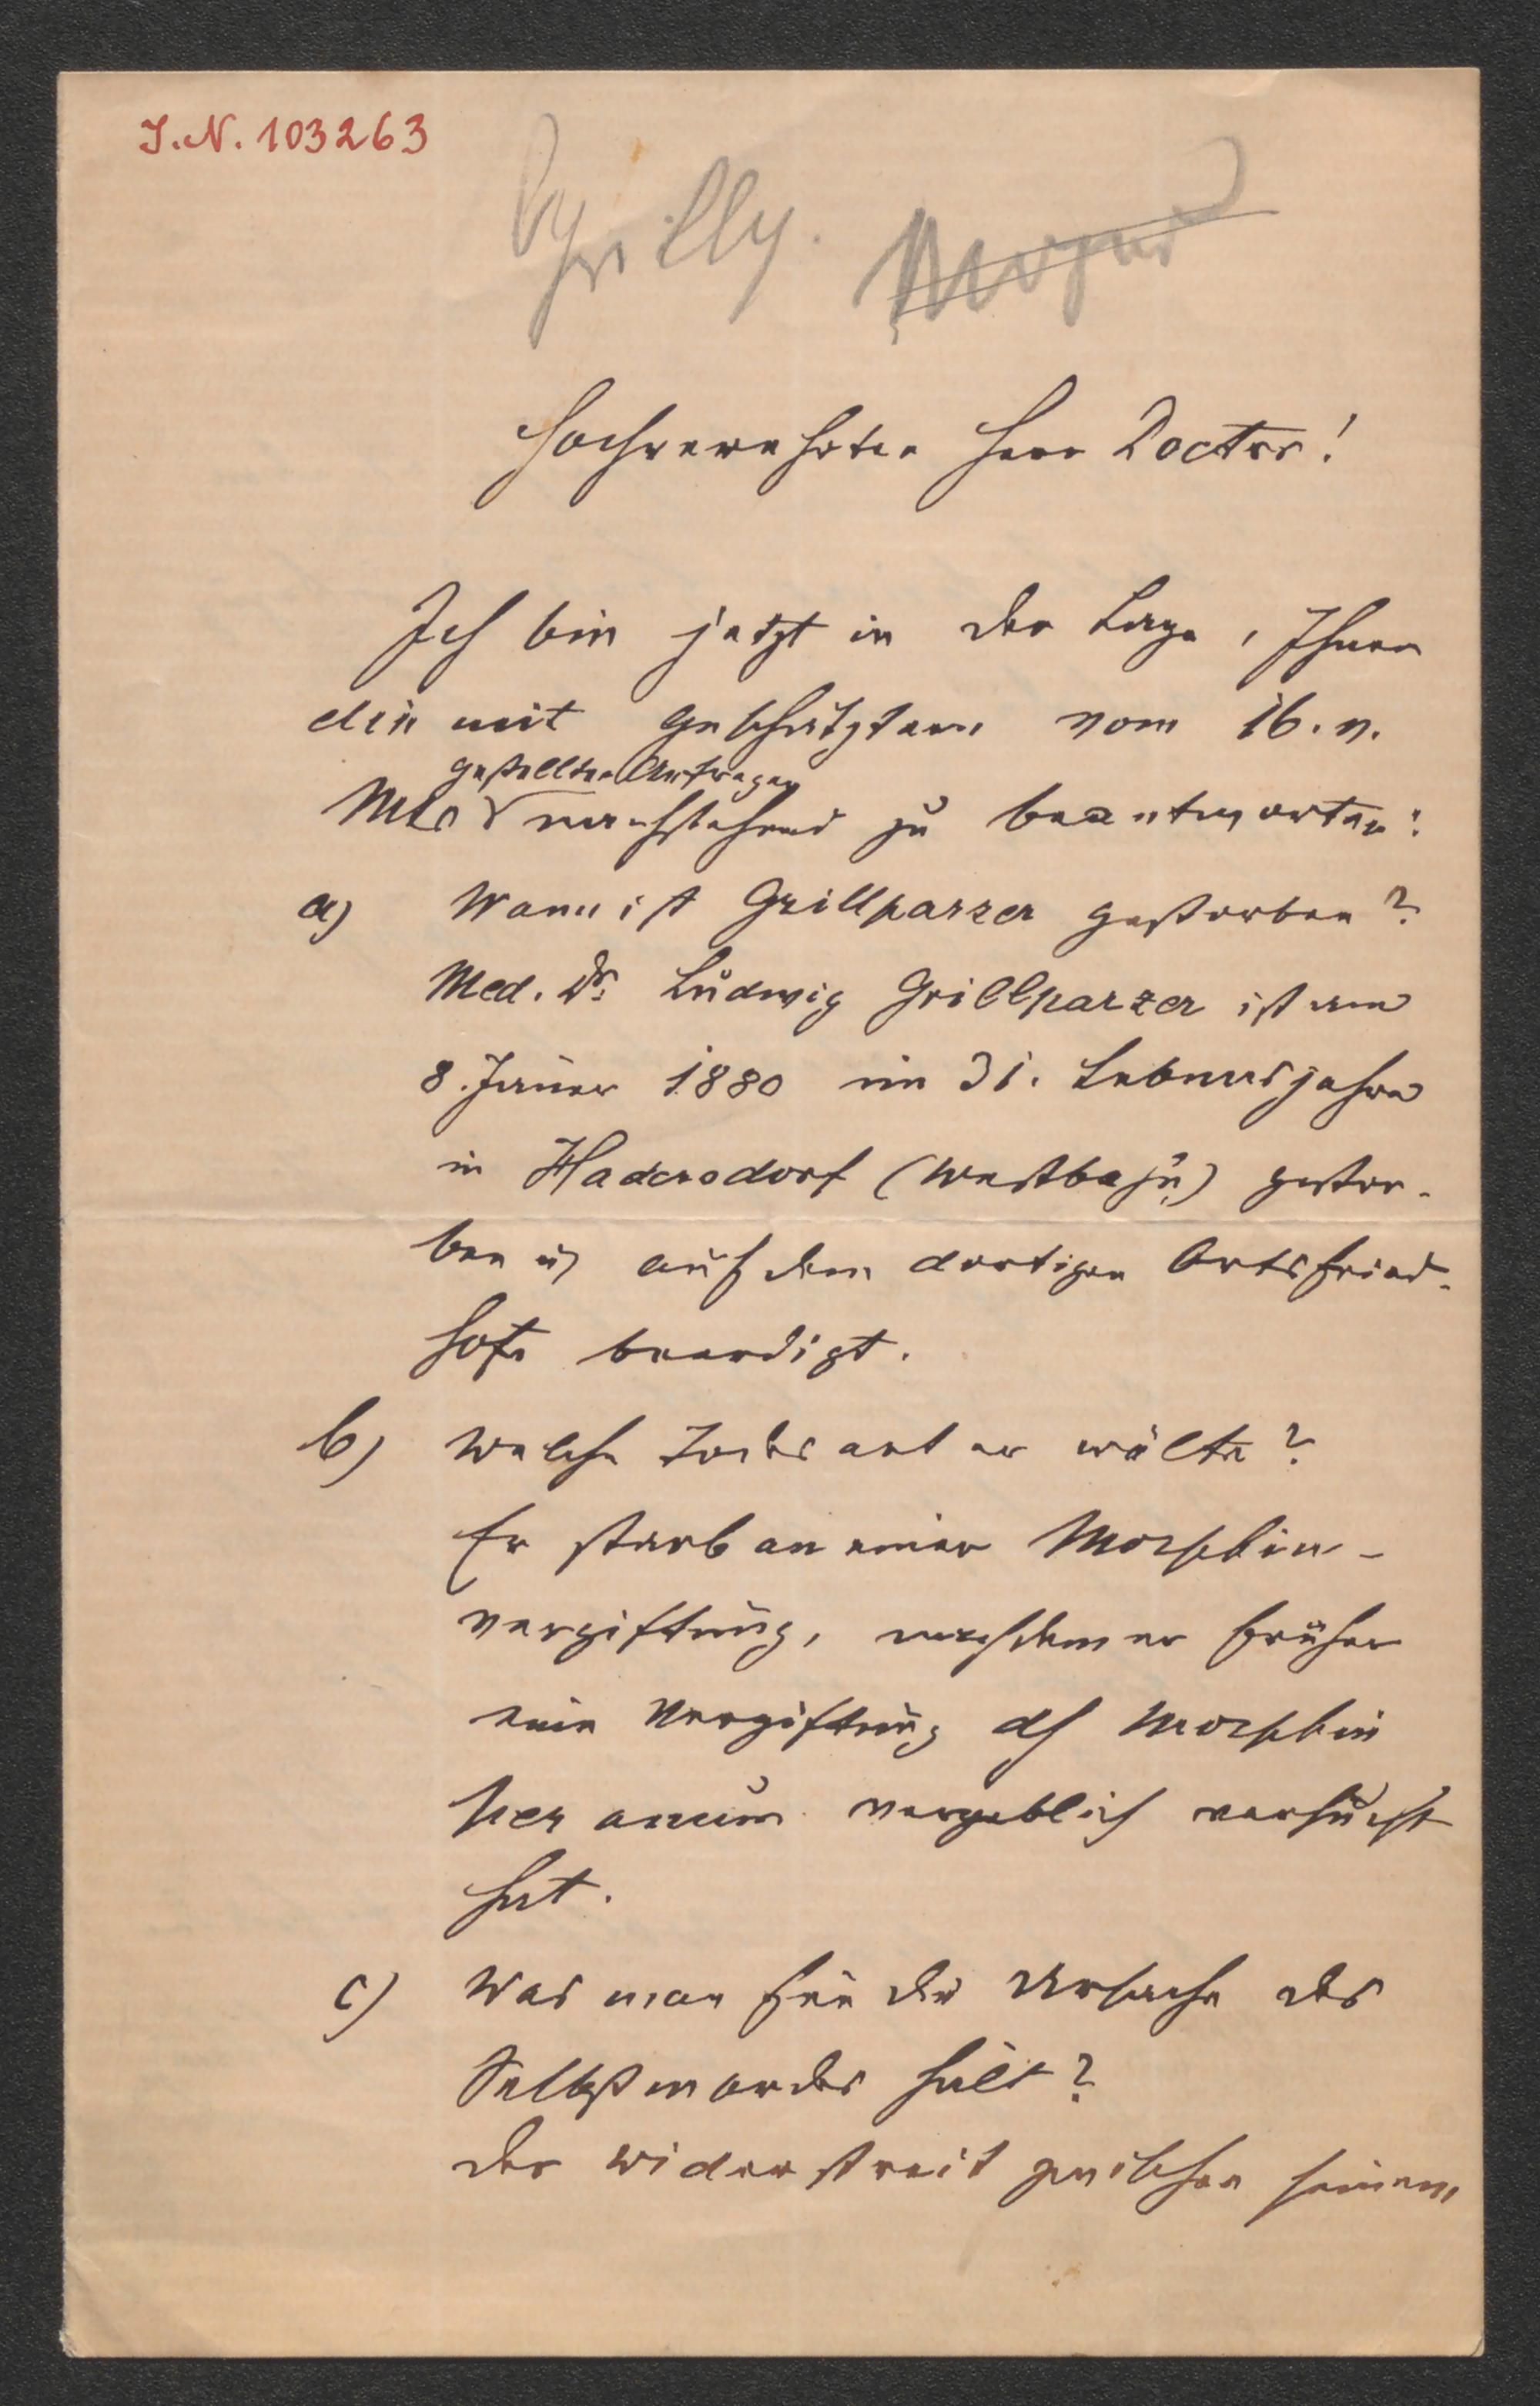 I.N. 103263
Hochverehrter Herr Doctor!
Ich bin jetzt in der Lage, Ihnen
die mit geschätztem vom 16. v.
gestellten Anfragen
Mts nachstehend zu beantworten:
a) Wann ist Grillparzer gestorben?
Med. Dr. Ludwig Grillparzer ist am
8. Jäner 1880 im 31. Lebensjahre
in Hadersdorf (Westbahn) gestor-
ben u auf dem dortigen Ortsfried-
hofe beerdigt.
b) Welche Todesart er wälte?
Er starb an einer Morphin-
vergiftung, nachdem er früher
eine Vergiftung dch Morphin
per anum vergeblich versucht
hat.
c) Was man für die Ursache des
Selbstmordes hält?
Der Widerstreit zwischen seinem